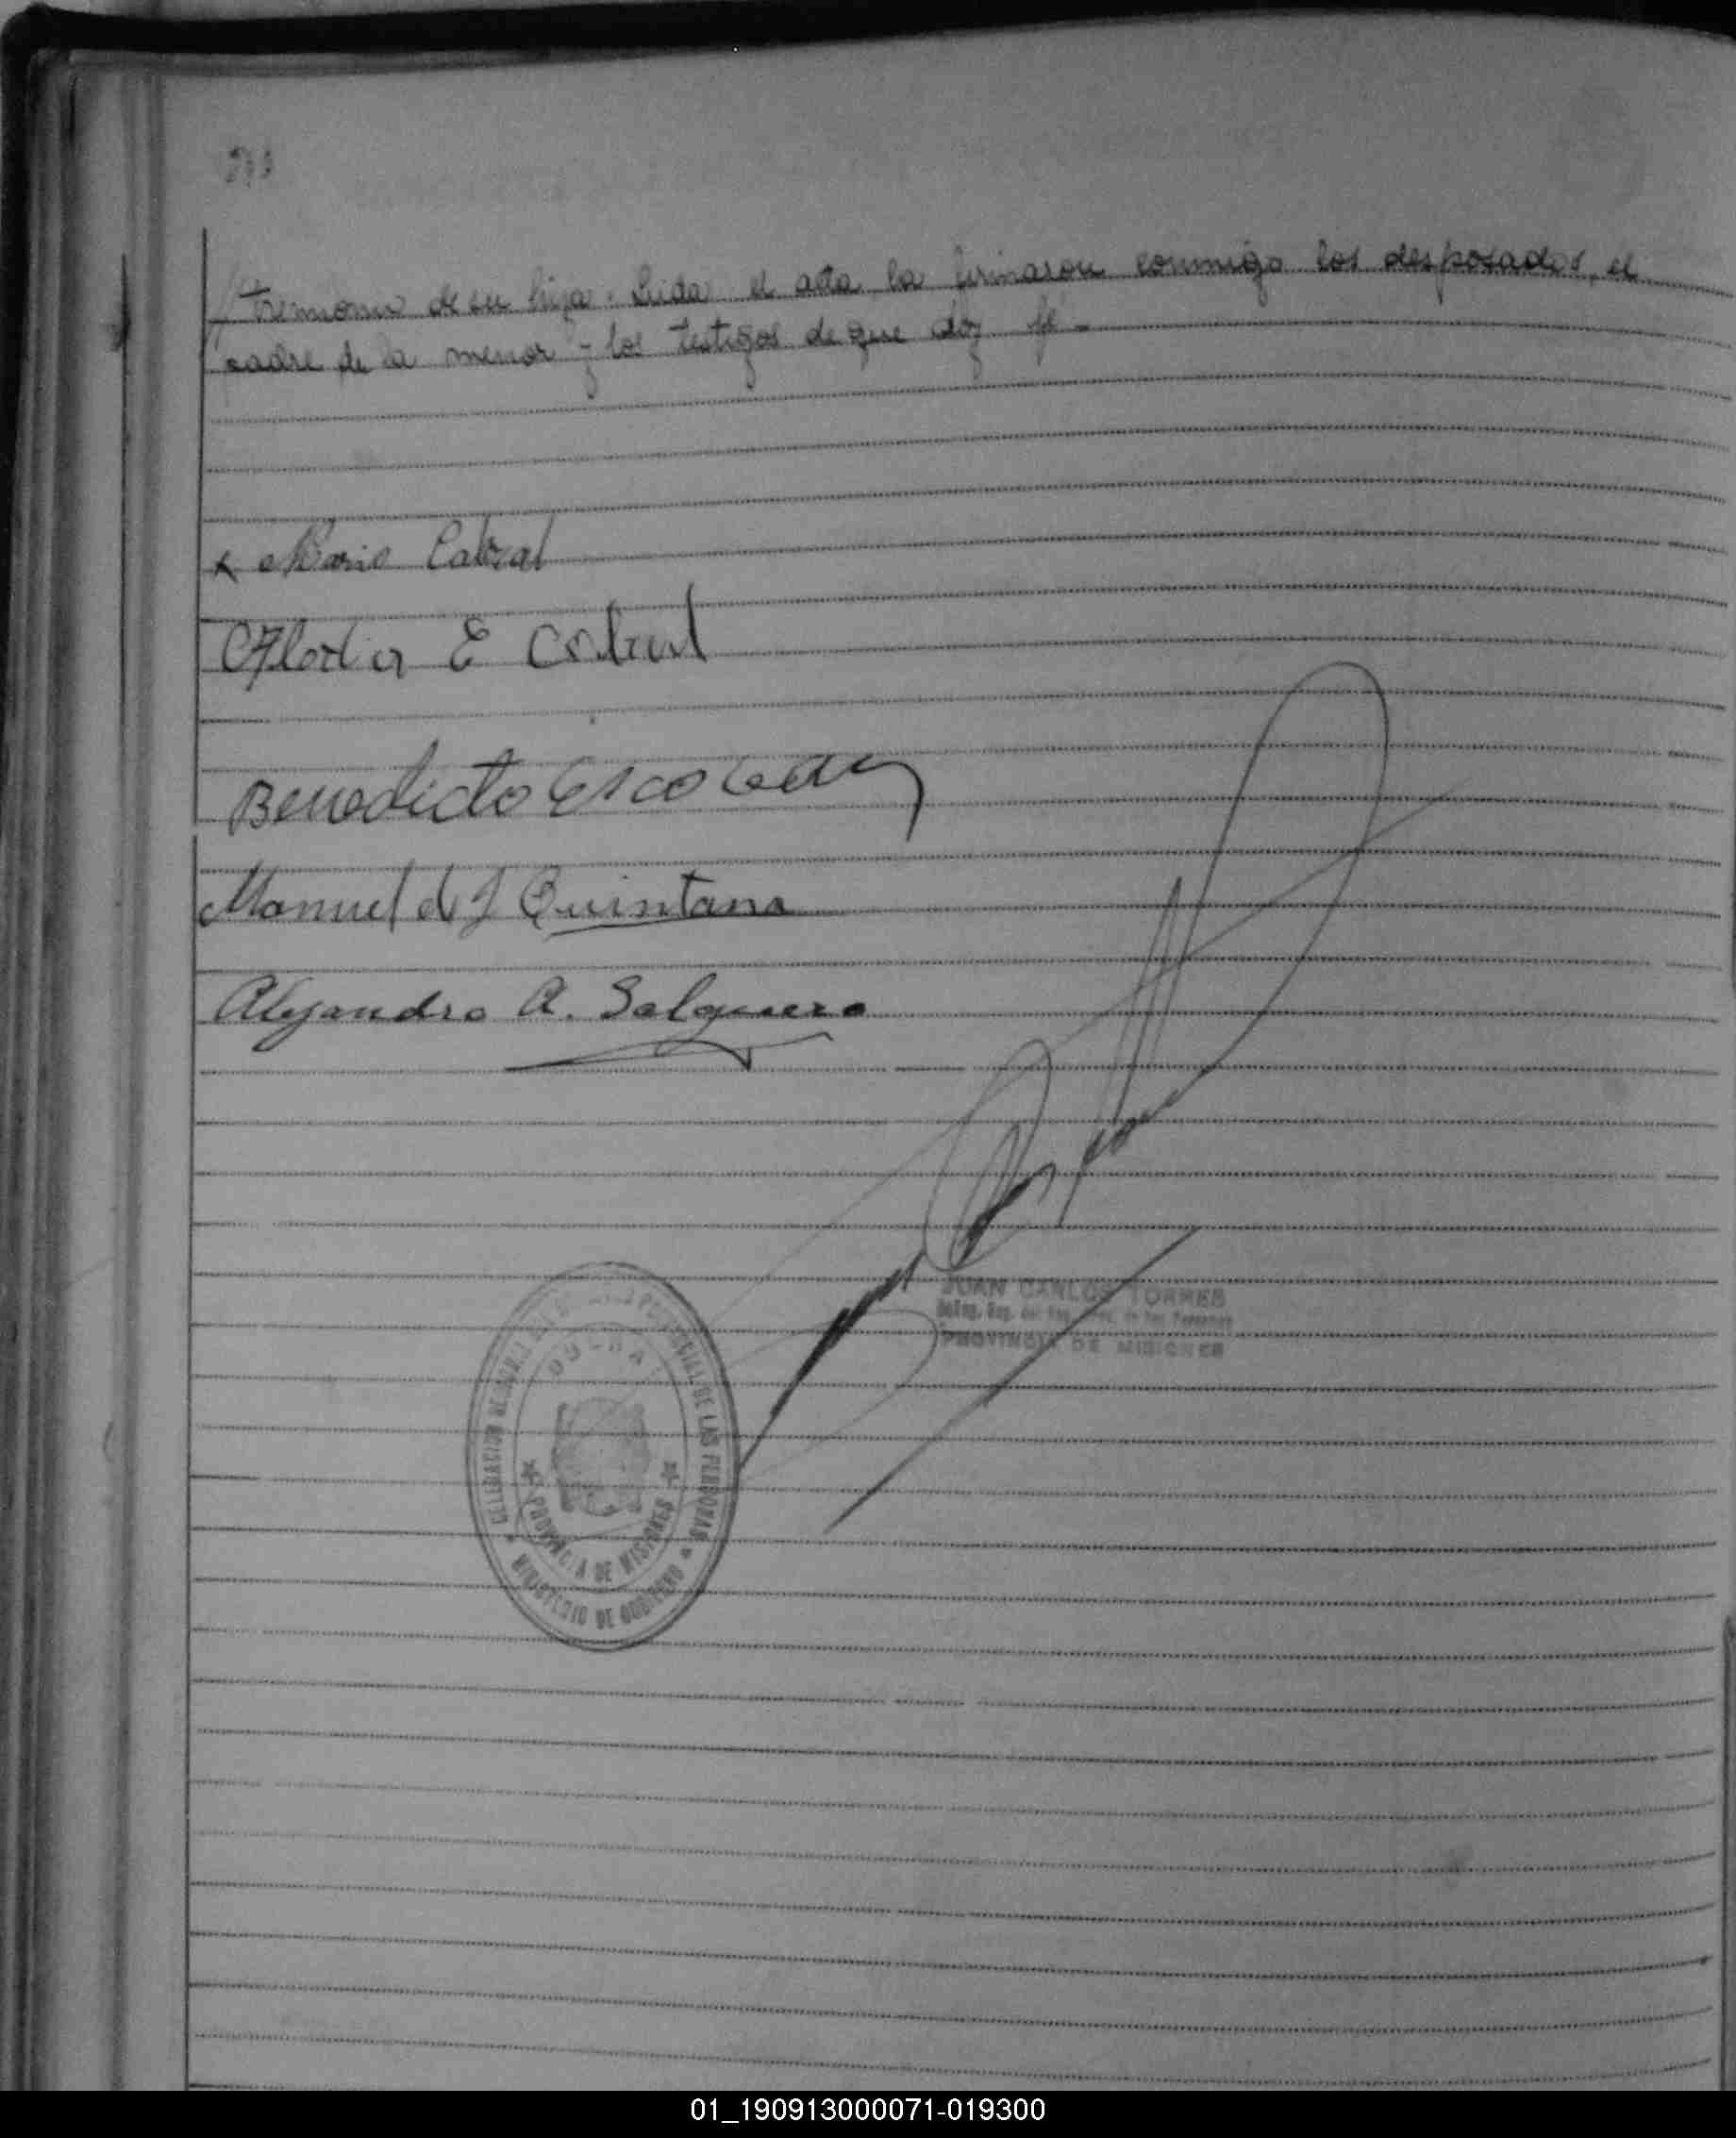 tremonio de su hija. Leida el acta, la firmaron conmigo los desposados, el
padre de la menor y los testigos de que doy fé-
x Mario Cabral
E Cabral
Benedicto Escobar
Manuel de J Quintana
Alejandro A. Salguero
JUAN CARLOS TORRES
PROVINCIA DE MISIONES
DE LAS PERSONAS
PROVINCIA DE MISIONES
MINISTERIO DE GOBIERNO
01_190913000071-019300